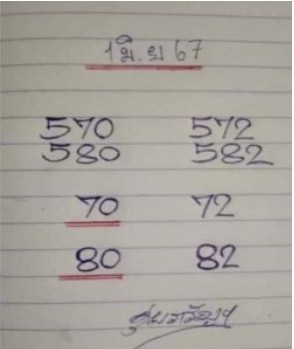 1 มิ.ย 67
570 572
580 582
70 72
80 82